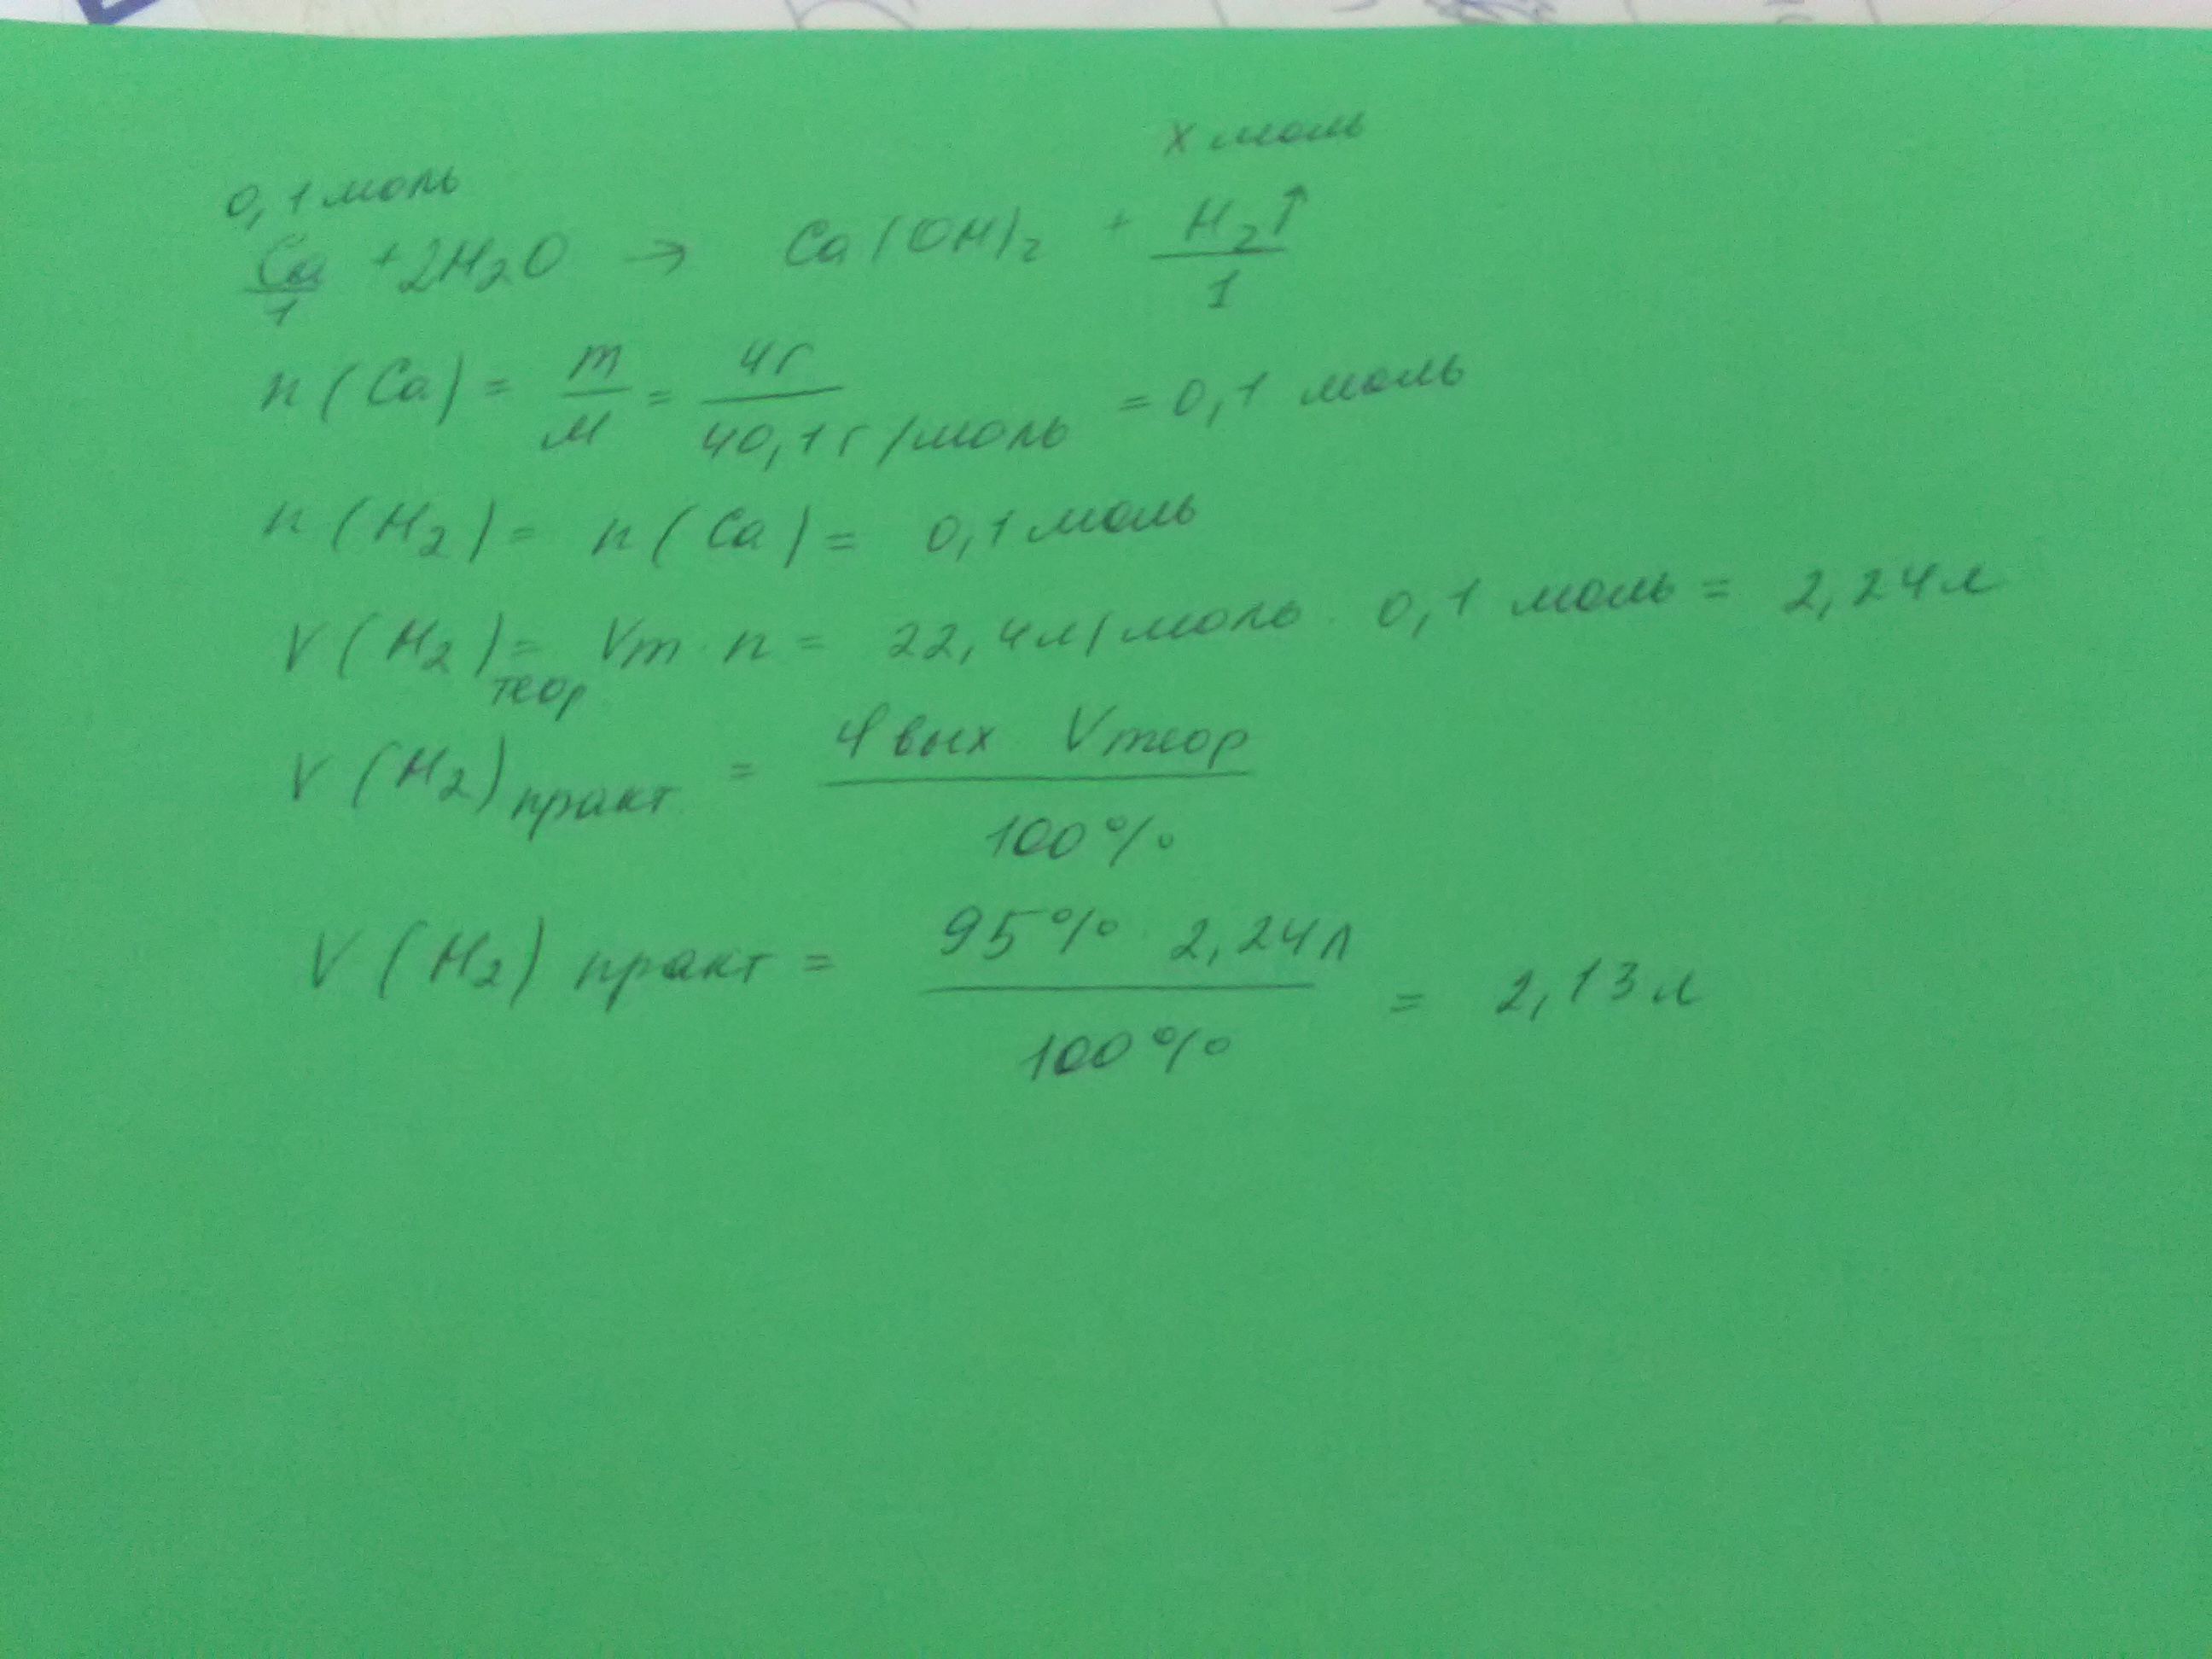 0,1 моль x моль
Ca + 2H2O → Ca(OH)2 + H2↑
1 1
n(Ca) = m/M = 4г/40,1г/моль = 0,1 моль
n(H2) = n(Ca) = 0,1 моль
V(H2)теор = Vm · n = 22,4л/моль · 0,1 моль = 2,24л
V(H2)практ = φвых Vтеор / 100%
V(H2) практ = 95% · 2,24л / 100% = 2,13л